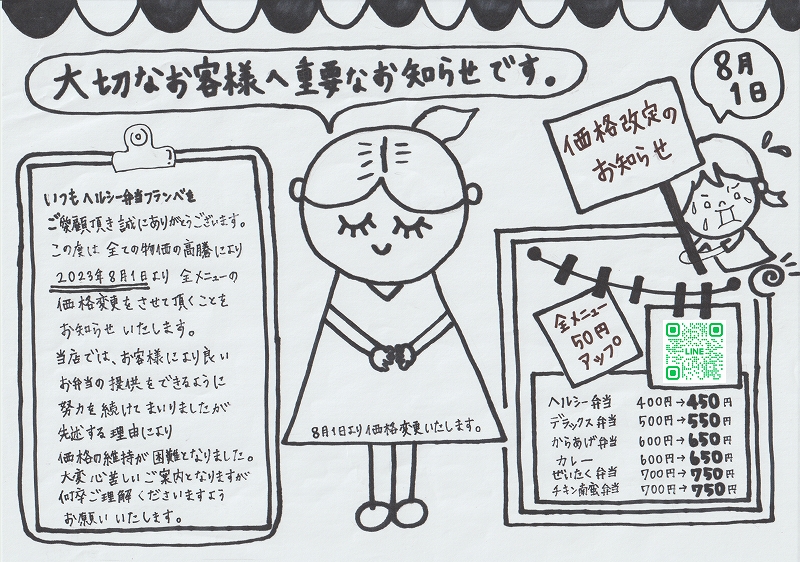 大切なお客様へ重要なお知らせです。
8月
1日
価格改定の
お知らせ
いつもヘルシー弁当フランベを
ご愛顧頂き誠にありがとうございます。
この度は全ての物価の高騰により
2023年8月1日より全メニューの
価格変更をさせて頂くことを
お知らせいたします。
当店では、お客様により良い
お弁当の提供をできるように
努力を続けてまいりましたが
先述する理由により
価格の維持が困難となりました。
大変心苦しいご案内となりますが
何卒ご理解くださいますよう
お願いいたします。
8月1日より価格変更いたします。
全メニュー
50円
アップ
LINE
ヘルシー弁当 400円→450円
デラックス弁当 500円→550円
からあげ弁当 600円→650円
カレー 600円→650円
ぜいたく弁当 700円→750円
チキン南蛮弁当 700円→750円